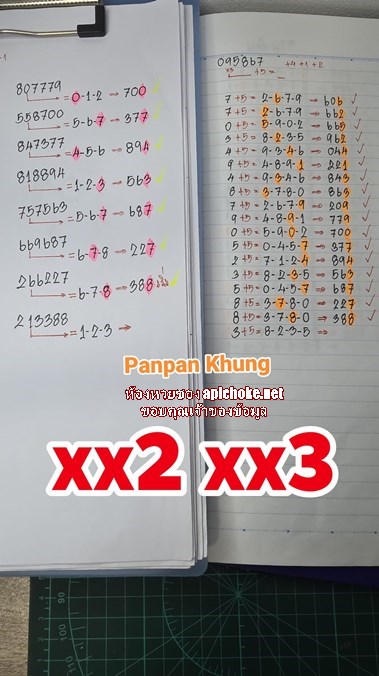 -1
807779
= 0-1-2 → 700
558700
= 5-6-7 → 377
847377
= 4-5-6 → 894
818894
= 1-2-3 → 563
757563
= 5-6-7 → 687
669687
= 6-7-8 → 227
266227
= 6-7-8 → 388
213388
= 1-2-3 →
095867 +4+1+E
x3 +5 = _
7+5 = 2-6-7-9 → 606 ✓
7+5 = 2-6-7-9 → 662 ✓
0+5 = 5-9-0-2 → 665 ✓
3+5 = 8-2-3-5 → 962 ✓
4+5 = 9-3-4-6 → 044 ✓
9+5 = 4-8-9-1 → 221 ✓
4+5 = 9-3-4-6 → 843 ✓
8+5 = 3-7-8-0 → 863 ✓
7+5 = 2-6-7-9 → 209 ✓
9+5 = 4-8-9-1 → 779 ✓
0+5 = 5-9-0-2 → 700 ✓
5+5 = 0-4-5-7 → 377 ✓
2+5 = 7-1-2-4 → 894 ✓
3+5 = 8-2-3-5 → 563 ✓
5+5 = 0-4-5-7 → 687 ✓
8+5 = 3-7-8-0 → 227 ✓
8+5 = 3-7-8-0 → 388 ✓
3+5 = 8-2-3-5 →
Panpan Khung
ห้องหวยซอง aplchoke.net
ขอบคุณเจ้าของข้อมูล
xx2 xx3